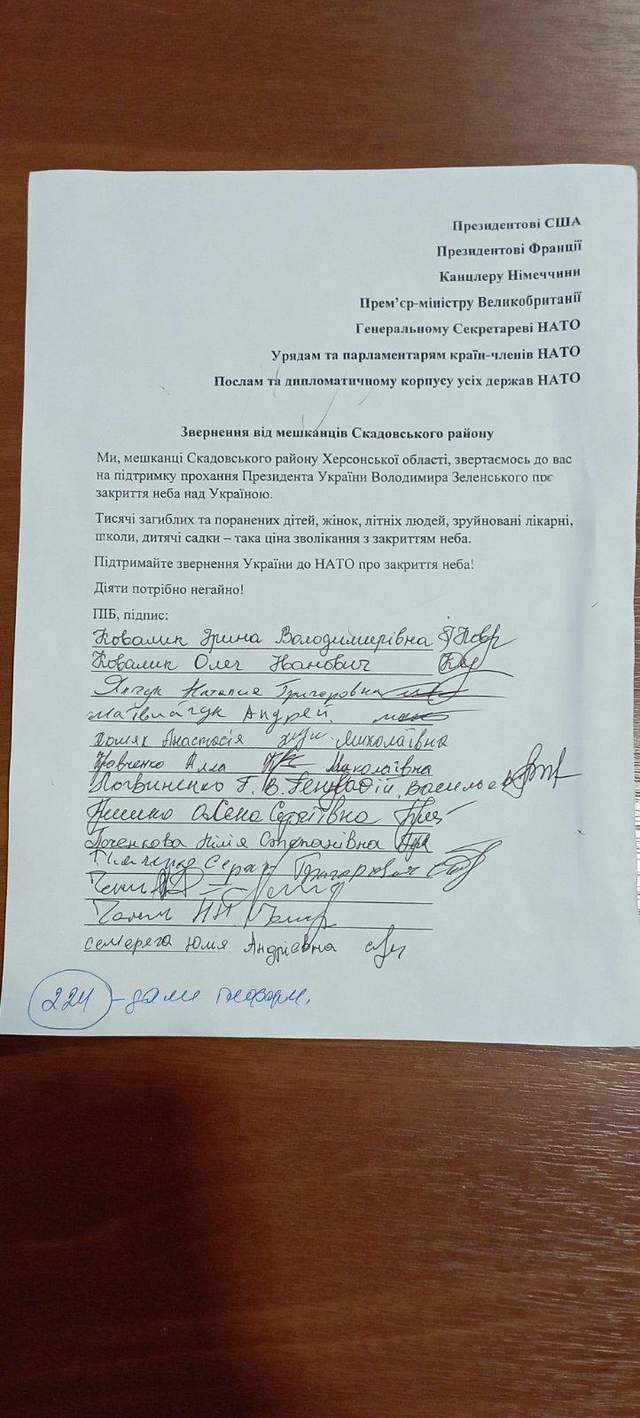 Президентові США
Президентові Франції
Канцлеру Німеччини
Прем’єр-міністру Великобританії
Генеральному Секретареві НАТО
Урядам та парламентарям країн-членів НАТО
Послам та дипломатичному корпусу усіх держав НАТО
Звернення від мешканців Скадовського району
Ми, мешканці Скадовського району Херсонської області, звертаємось до вас
на підтримку прохання Президента України Володимира Зеленського про
закриття неба над Україною.
Тисячі загиблих та поранених дітей, жінок, літніх людей, зруйновані лікарні,
школи, дитячі садки – така ціна зволікання з закриттям неба.
Підтримайте звернення України до НАТО про закриття неба!
Діяти потрібно негайно!
ПІБ, підпис:
Ковалик Ірина Володимирівна
Ковалик Олег Іванович
Наталія Григоровна
Андрей
Анастасія Миколаївна
Кравченко Алла Миколаївна
Логвиненко Г. В. Генадій
Олена Сергіївна
Лілія Степанівна
Григорович
Семерега Юлія Андріївна
224 -